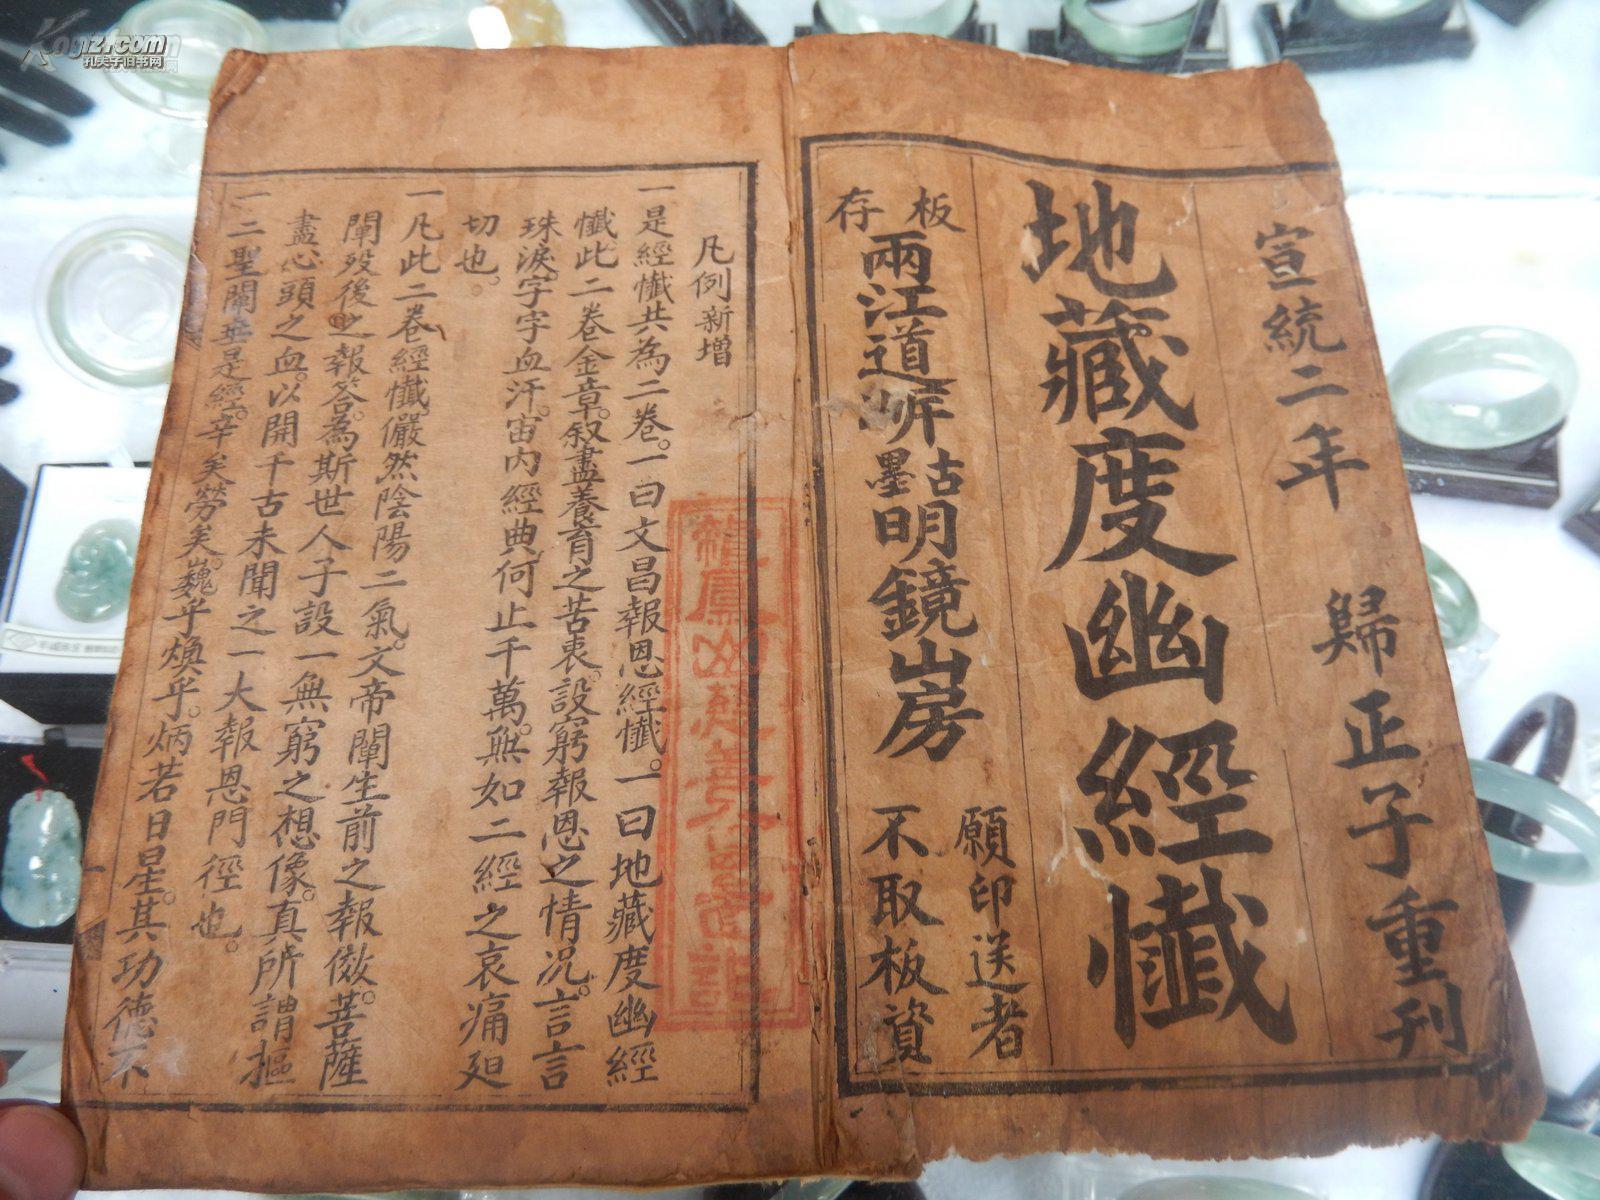 宣統二年 歸正子重刊
地藏度幽經懺
板存兩江道斨古墨明鏡山房
願印送者
不取板資
凡例新增
一是經懺共為二卷。一曰文昌報恩經懺。一曰地藏度幽經
懺。此二卷金章。叙盡養育之苦衷。設窮報恩之情況。言言
珠淚。字字血汗。宙內經典。何止千萬。無如二經之哀痛廹
切也。
一凡此二卷經懺。儼然陰陽二氣。文帝闡生前之報傚。菩薩
闡歿後之報答。為斯世人子設一無窮之想像。真所謂摳
盡心頭之血。以開千古未聞之一大報恩門徑也。
一二聖闡垂是經。辛矣勞矣。巍乎煥乎。炳若日星。其功德不
Kongfz.com
孔夫子旧书网